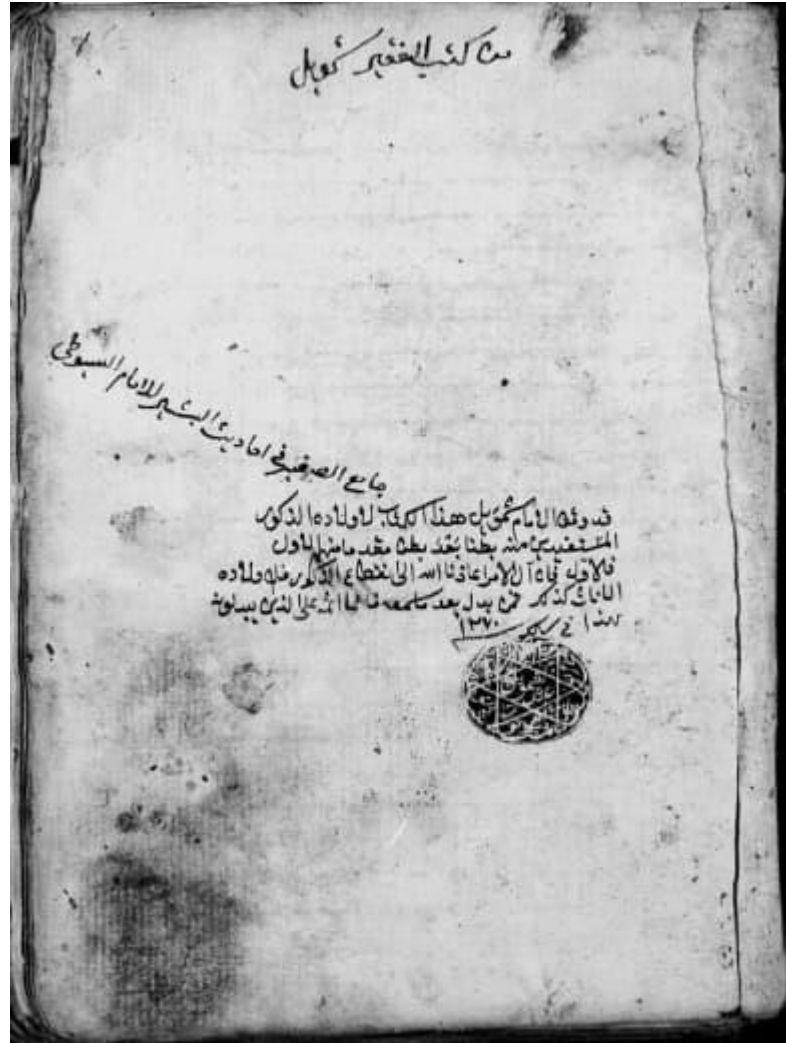 من كتب الفقير شمويل
جامع الصغير في احاديث البشير للامام السيوطي
قد وقف الامام شمويل هذا الكتاب لاولاده الذكور
المستفيدين منه بطنا بعد بطن مقدما منهم الاول
فالاول فان آل الامر عاذنا الله الى انقطاع الذكور فلاولاده
الاناث كذلك فمن بدل بعد ما سمعه فانما اثمه على الذين يبدلونه
هذا في سنة ١٢٧٠